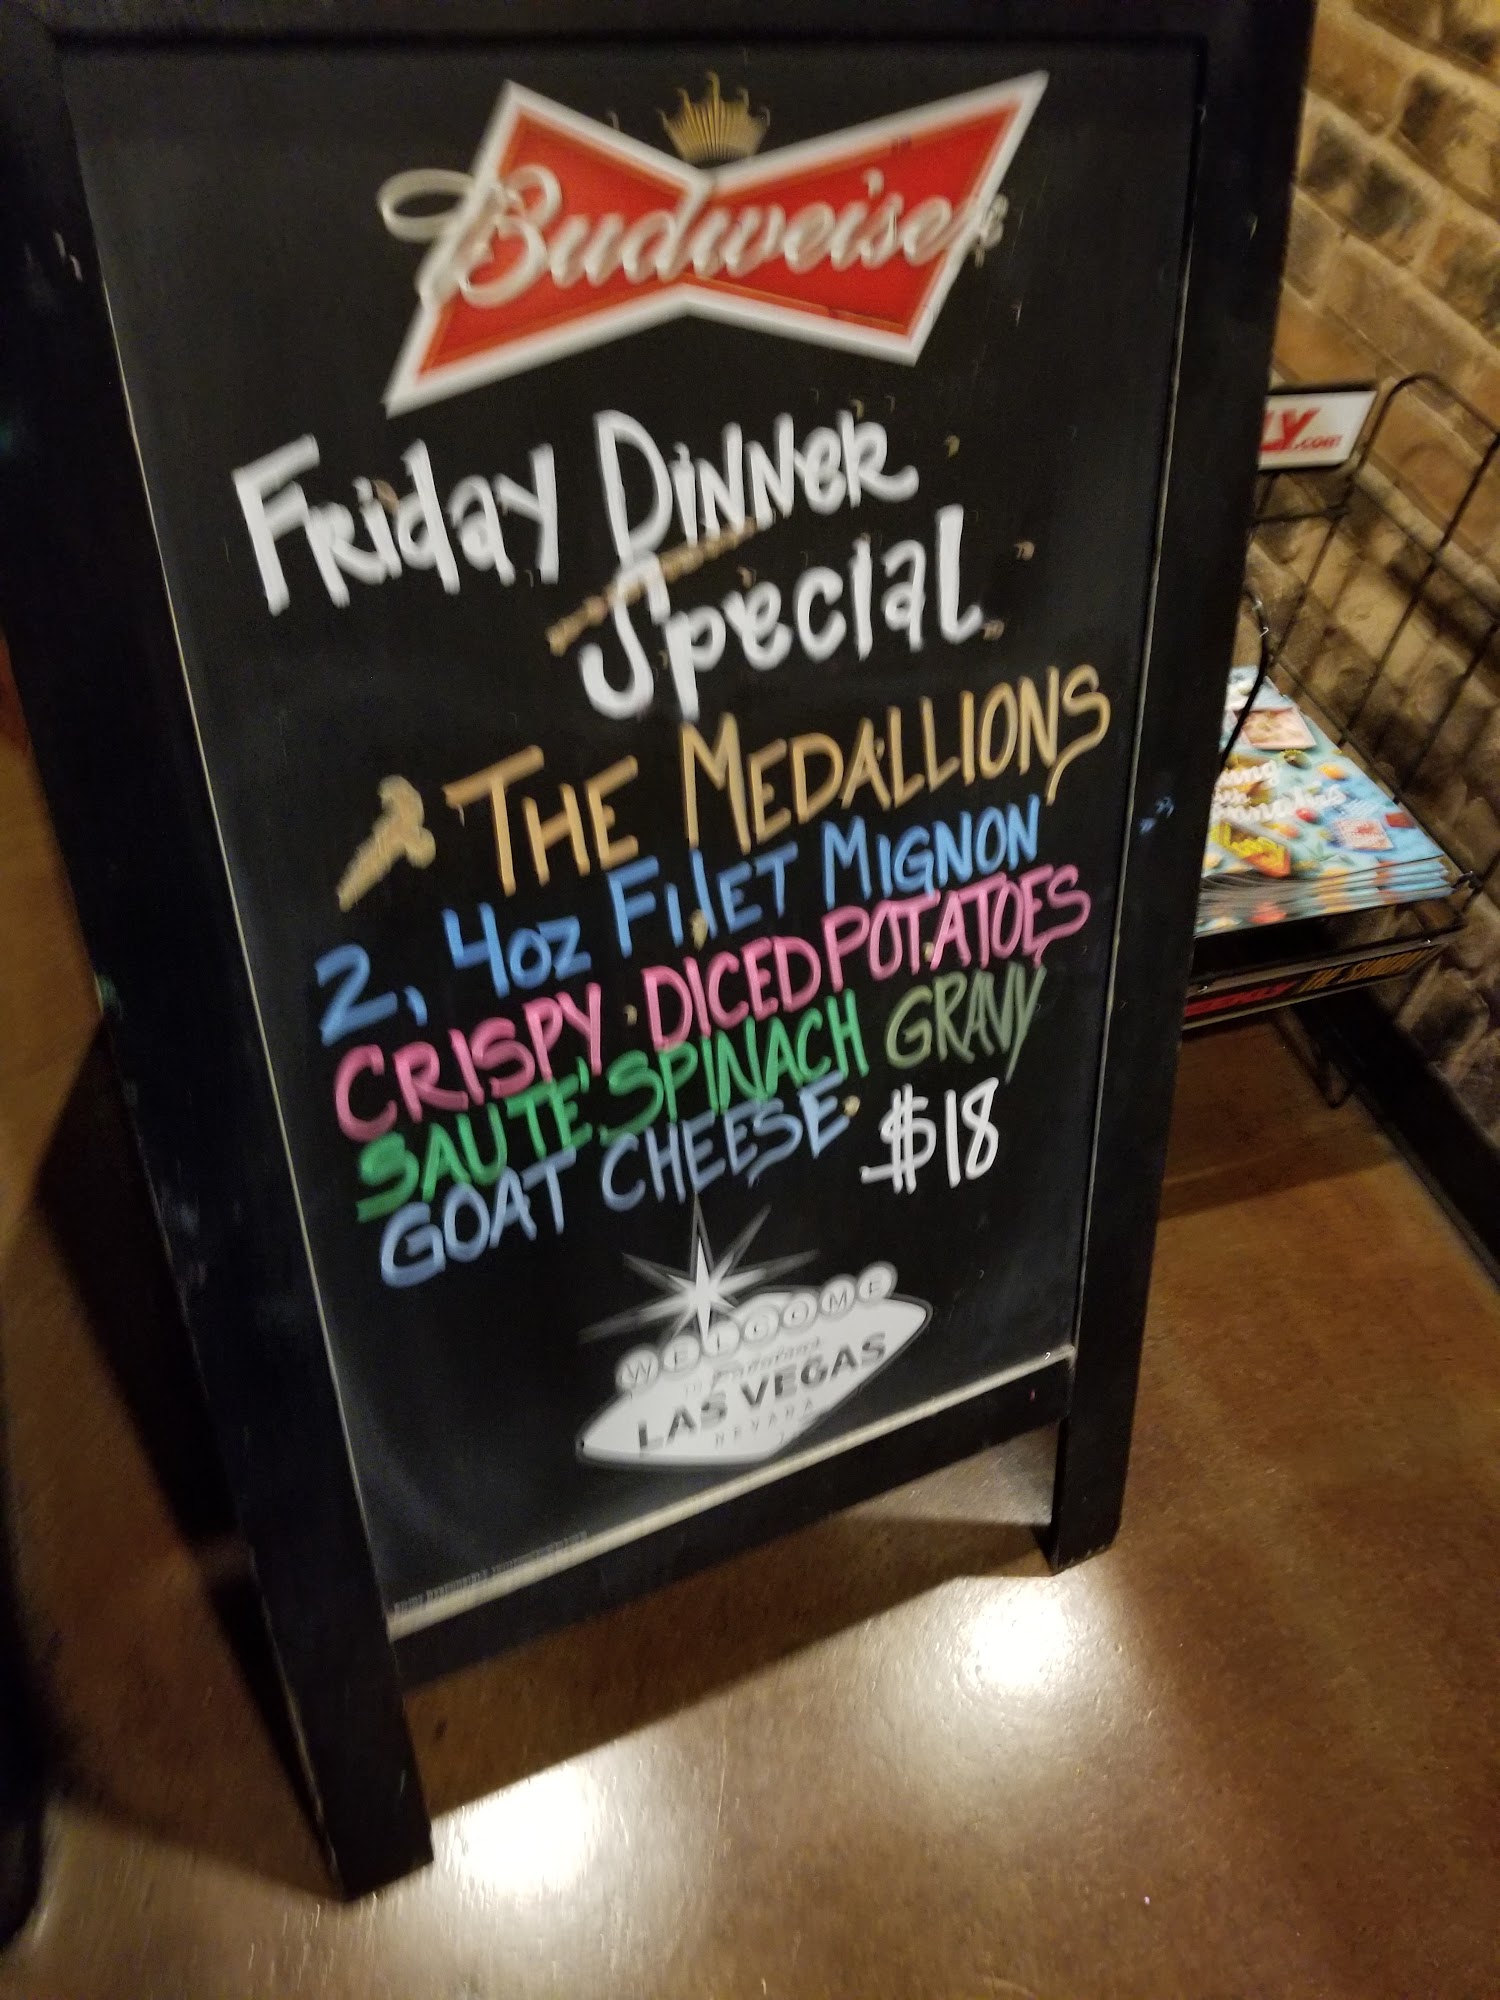 Budweiser
Friday Dinner
Special
THE MEDALLIONS
2, 4oz FILLET MIGNON
CRISPY DICED POTATOES
SAUTE' SPINACH GRAVY
GOAT CHEESE $18
WELCOME
TO Fabulous
LAS VEGAS
NEVADA
LY.com